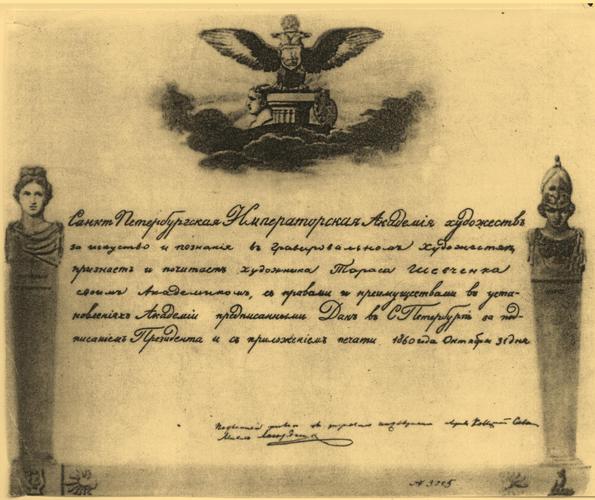 Санктъ Петербургская Императорская Академія художествъ
за искуство и познанія въ гравировальномъ художествѣ,
признаетъ и почитаетъ художника Тараса Шевченка
своимъ Академикомъ, съ правами и преимуществами въ уста-
новленіяхъ Академіи предписанными. Данъ въ С. Петербургѣ за под-
писаніемъ Президента и съ приложеніемъ печати 1860 года Октября 31 дня
№ 3225